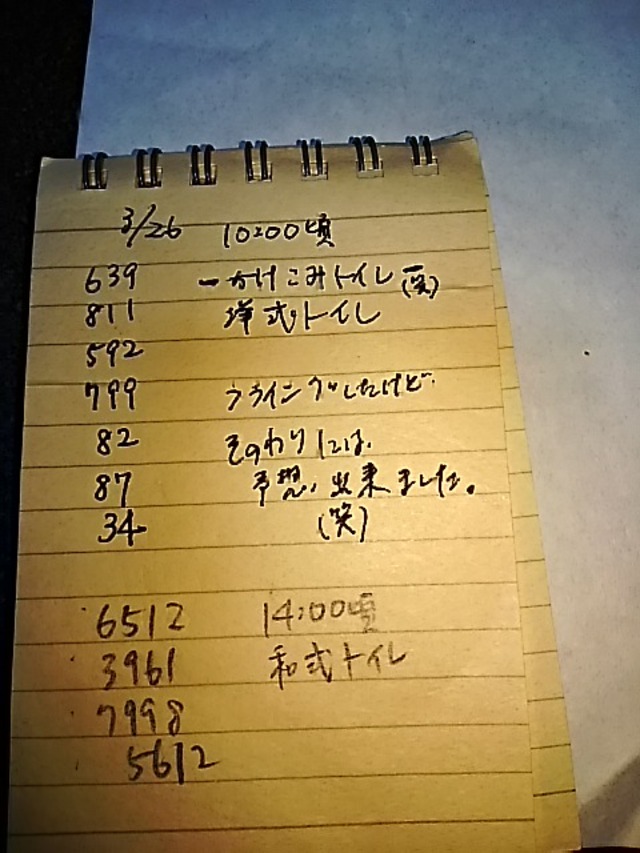 3/26 10:00頃
639 ーかけこみトイレ(笑)
811 洋式トイレ
592
799 フライングしたけど
82 そのわりには、
87 予想、出来ました。
34 (笑)
6512 14:00頃
3961 和式トイレ
7998
5612